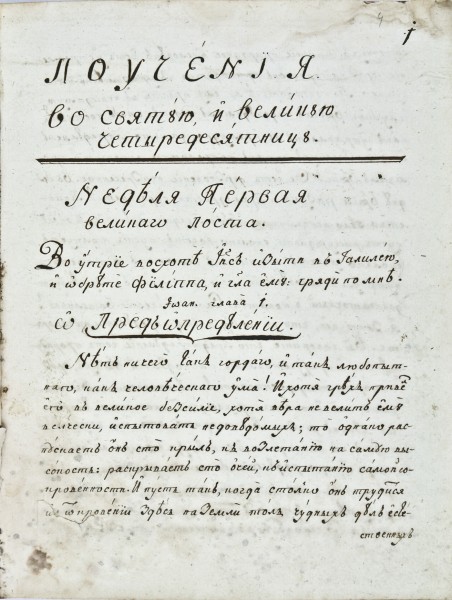 1
ПОУЧЕ́НІЯ
во святꙋю, и̂ вели́кꙋю
четыредеся́тницꙋ.
Недѣ́ля Первая
вели́каго по́ста.
Во ѹ҆тріе восхотѣ Іи҃съ и҆зы́ти въ Галиле́ю,
и҆ ѡ҆брѣ́те Філі́ппа, и҆ гл҃а є҆мꙋ̀: гряди̂ по мнѣ̀.
Іѡан: глава̀ 1.
ѡ̂ Предъѡпредѣле́нїи.
Нѣ́тъ ничего̀ та́къ го́рдаго, и҆ та́къ любопы́т-
наго, ка́къ человѣ́ческаго ѹ҆ма̀! И҆ хотя̀ грѣ́хъ приве́лъ
є҆го̀ въ вели́кое безси́лїе, хотя̀ вѣ́ра не вели́тъ є҆мꙋ̀
и҆спы́товать недовѣдо́мыхъ; то одна́ко рас-
пꙋска́етъ о́нъ сто̀ кри́лъ, къ возлета́нїю на са́мꙋю вы-
со́кость: раскрыва́етъ сто̀ оче́й, къ и҆спыта́нїю са́мой со-
крове́нности. И҆ пꙋ́сть та́къ, когда̀ сто́лко о́нъ трꙋди́лся
здѣ́сь на земли̂ то́лъ чꙋ́дныхъ дѣ́лъ е҆сте-
ственныхъ